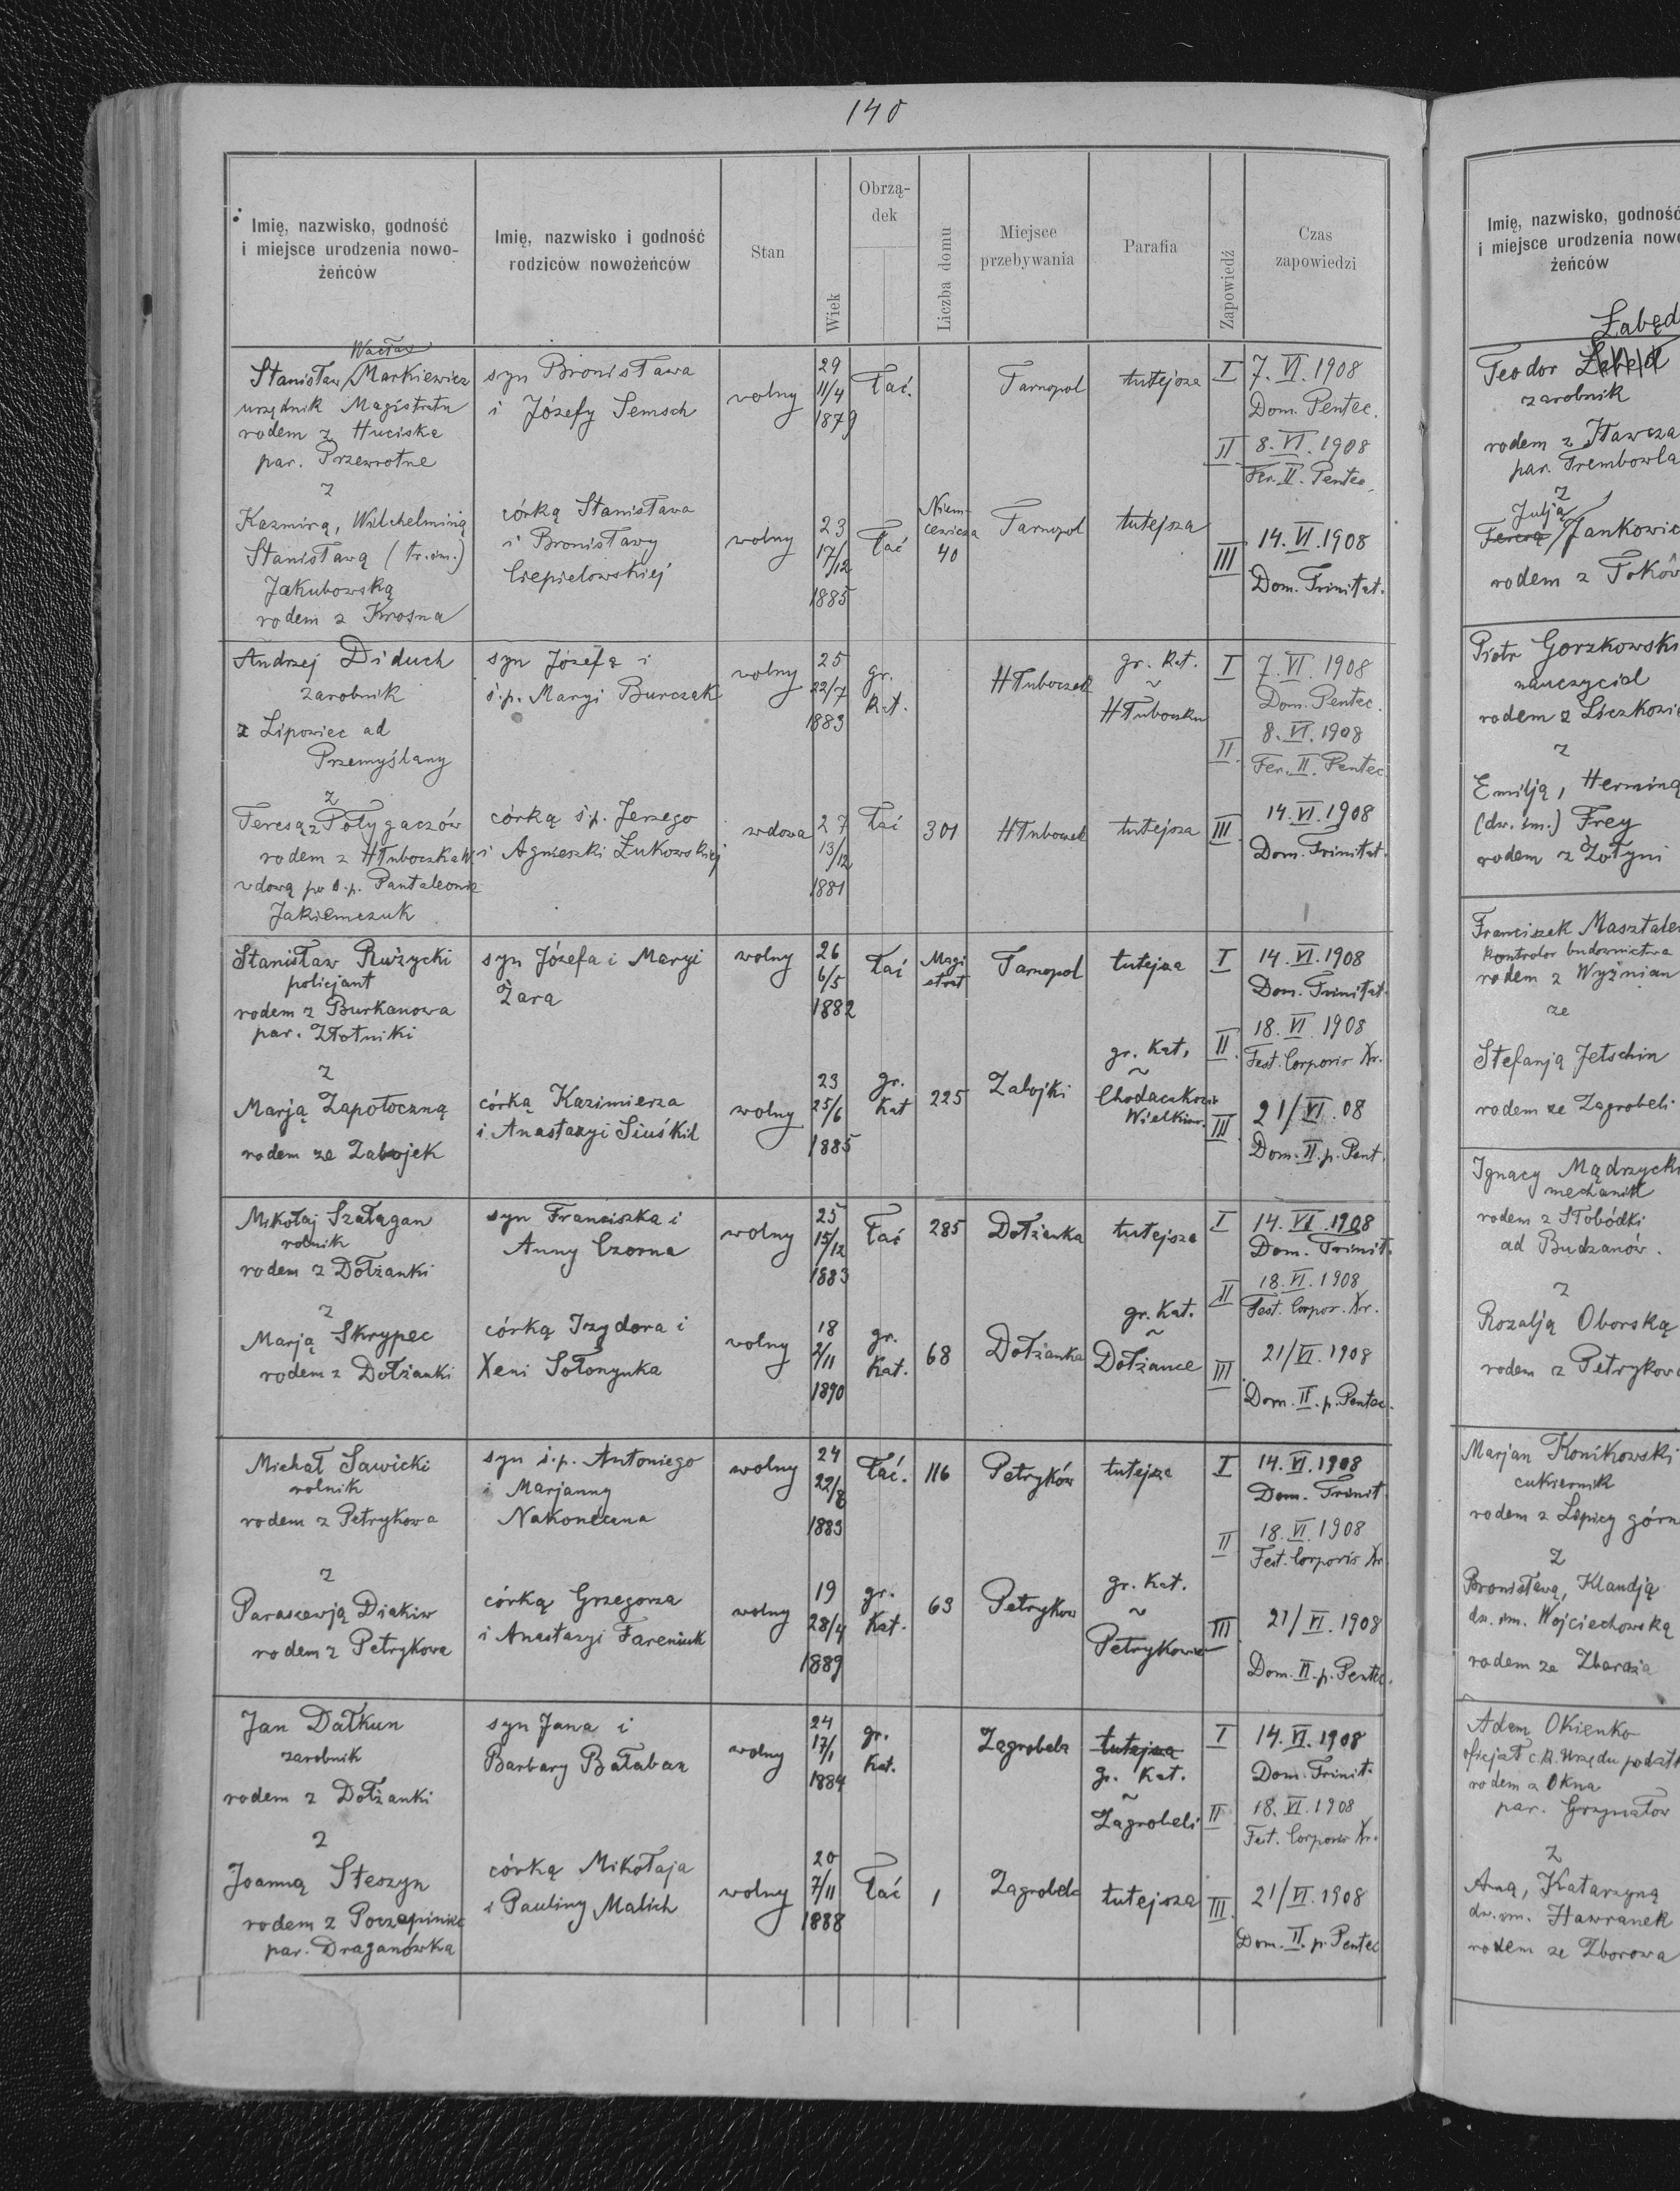 140
Imię, nazwisko, godność
i miejsce urodzenia nowo-
żeńców
Imię, nazwisko i godność
rodziców nowożeńców
Stan
Wiek
Obrzą-
dek
Liczba domu
Miejsce
przebywania
Parafia
Zapowiedź
Czas
zapowiedzi
Wacław
Stanisław Markiewicz
urzędnik Magistratu
rodem z Huciska
par. Przewrotne
syn Bronisława
i Józefy Semsch
wolny
29
11/4
1879
łać.
Tarnopol
tutejsza
I 7. VI. 1908
Dom. Pentec.
II 8. VI. 1908
Fer. II. Pentec.
z
Kazmirą, Wilchelminą
Stanisławą (tr. im.)
Jakubowską
rodem z Krosna
córką Stanisława
i Bronisławy
Ciepielowskiej
wolny
23
17/12
1885
łać
Niem-
cewicza
40
Tarnopol
tutejsza
III 14. VI. 1908
Dom. Trinitat.
Andrzej Diduch
zarobnik
z Lipowiec ad
Przemyślany
syn Józefa i
ś.p. Maryi Burczak
wolny
25
22/7
1883
gr.
Kat.
Hłuboczek
gr. Kat.
~
Hłuboczku
I 7. VI. 1908
Dom. Pentec.
II. 8. VI. 1908
Fer. II. Pentec.
z
Teresą z Połygaczów
rodem z Hłuboczka W
wdową po ś.p. Pantaleonie
Jakiemczuk
córką ś.p. Jerzego
i Agnieszki Żukowskiej
wdowa
27
13/12
1881
łać
301
Hłuboczek
tutejsza
III. 14. VI. 1908
Dom. Trinitat.
Stanisław Rużycki
policjant
rodem z Burkanowa
par. Złotniki
syn Józefa i Maryi
Żara
wolny
26
6/5
1882
łać
Magi
strat
Tarnopol
tutejsza
I 14. VI. 1908
Dom. Trinitat.
II. 18. VI. 1908
Fest. Corporis Xr.
z
Marją Zapotoczną
rodem ze Zabojek
córką Kazimierza
i Anastazyi Siuśkil
wolny
23
25/6
1885
gr.
Kat
225
Zabojki
gr. Kat.
~
Chodaczkowie
Wielkim
III 21/VI. 08
Dom. II. p. Pent.
Mikołaj Szałagan
rolnik
rodem z Dołżanki
syn Franciszka i
Anny Czorna
wolny
25
15/12
1883
łać
285
Dołżanka
tutejsza
I 14. VI. 1908
Dom. Trinit.
II 18. VI. 1908
Fest. Corpor. Xr.
z
Marją Skrypec
rodem z Dołżanki
córką Izydora i
Xeni Sołonynka
wolny
18
2/11
1890
gr.
Kat.
68
Dołżanka
gr. Kat.
~
Dołżance
III 21/VI. 1908
Dom. II. p. Pentec.
Michał Sawicki
rolnik
rodem z Petrykowa
syn ś.p. Antoniego
i Marjanny
Nakoneczna
wolny
24
22/8
1883
łać.
116
Petryków
tutejsza
I 14. VI. 1908
Dom. Trinit.
II 18. VI. 1908
Fest. Corporis Xr.
z
Parascewją Diakiw
rodem z Petrykowa
córką Grzegorza
i Anastazyi Fareniuk
wolny
19
28/4
1889
gr.
Kat.
63
Petryków
gr. Kat.
~
Petrykowie
III 21/VI. 1908
Dom. II. p. Pentec.
Jan Dałkun
zarobnik
rodem z Dołżanki
syn Jana i
Barbary Bałaban
wolny
24
17/1
1884
gr.
Kat.
Zagrobela
tutejsza
gr. Kat.
~
Zagrobeli
I 14. VI. 1908
Dom. Trinit.
II 18. VI. 1908
Fest. Corporis Xr.
z
Joanną Steszyn
rodem z Poczapiniec
par. Draganówka
córką Mikołaja
i Pauliny Malich
wolny
20
7/11
1888
łać
1
Zagrobela
tutejsza
III. 21/VI. 1908
Dom. II. p. Pentec
Imię, nazwisko, godność
i miejsce urodzenia nowo
żeńców
Łabęd
Teodor
zarobnik
rodem z Iławcza
par. Trembowla
z
Julją
Teresą Jankowic
rodem z Toków
Piotr Gorzkowski
nauczyciel
rodem z Liczkowi
z
Emilją, Herminą
(dw. im.) Frey
rodem z Żołyni
Franciszek Masztaler
kontrolor budownictwa
rodem z Wyżnian
ze
Stefanją Jetschin
rodem ze Zagrobeli
Ignacy Mądrzycki
mechanik
rodem z Słobódki
ad Budzanów.
z
Rozalją Oborską
rodem z Petrykow
Marjan Konikowski
cukiernik
rodem z Lipicy górn
z
Bronisławą, Klaudją
dw. im. Wojciechowską
rodem ze Zbaraża
Adam Okienko
oficjał c.k. Urzędu podatk
rodem z Okna
par. Grzymałow
z
Anną, Katarzyną
dw. im. Hawranek
rodem ze Zborowa